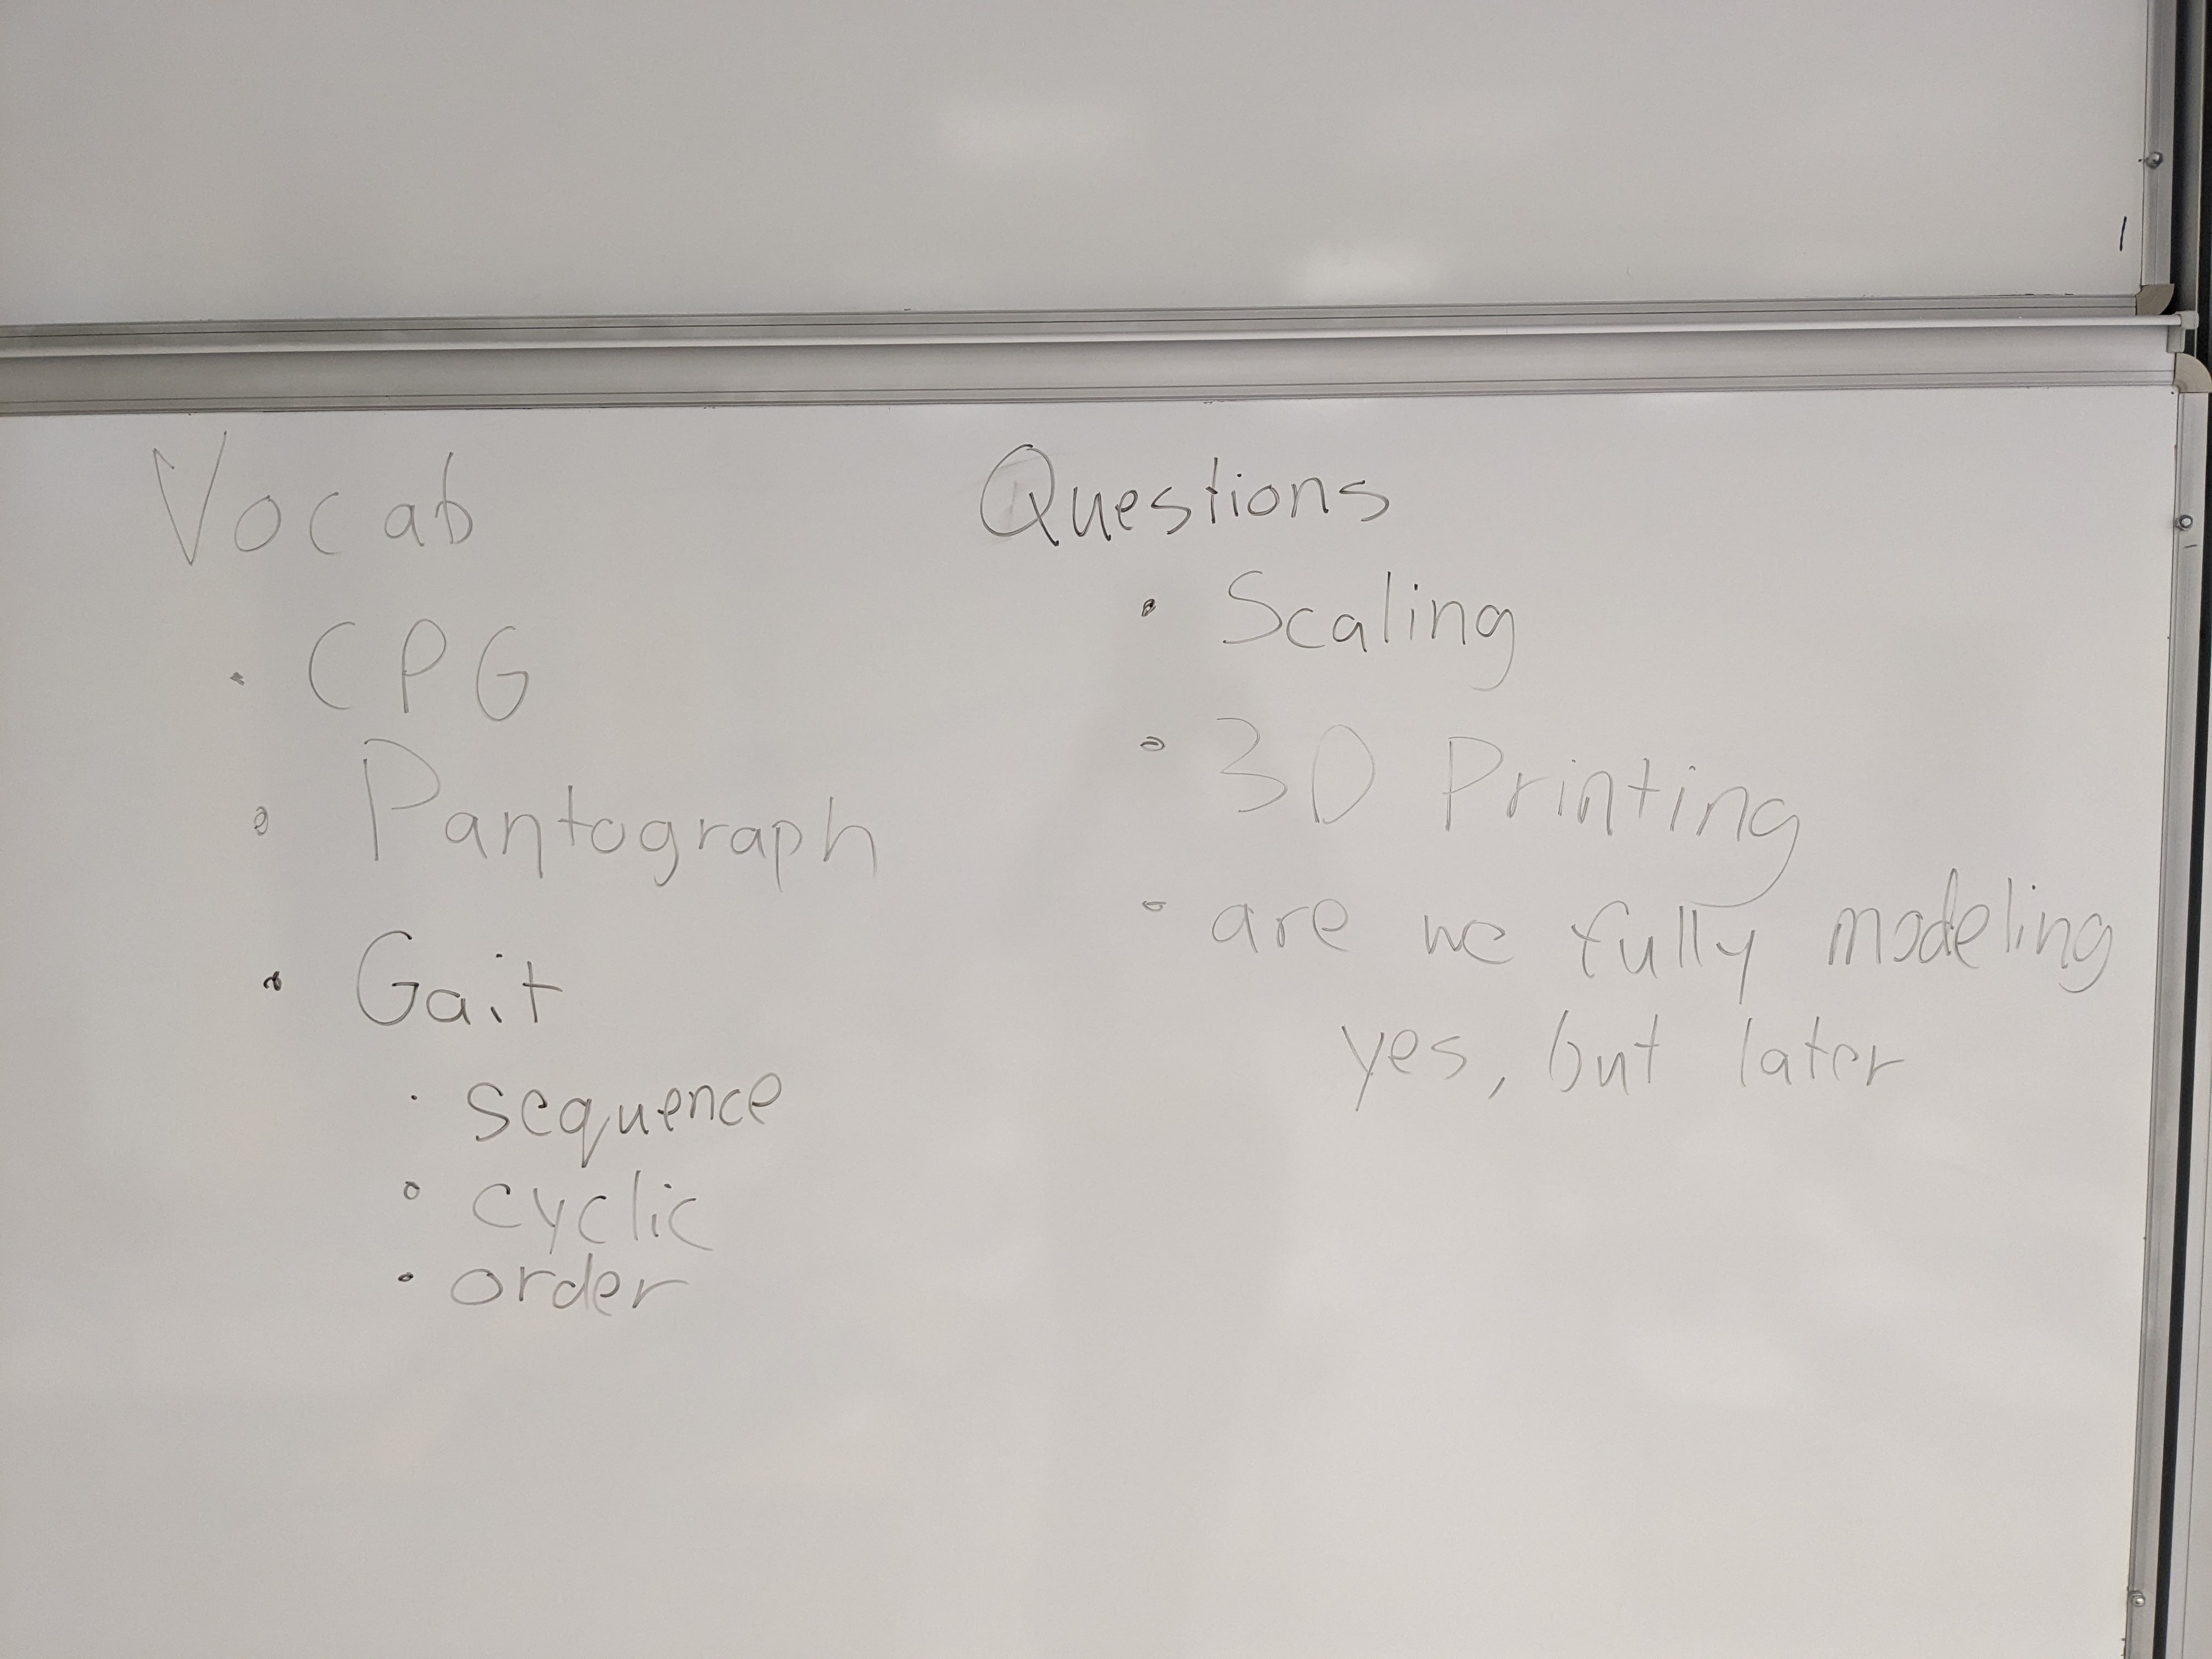 Vocab
• CPG
• Pantograph
• Gait
• sequence
• cyclic
• order
Questions
• Scaling
• 3D Printing
• are we fully modeling
yes, but later